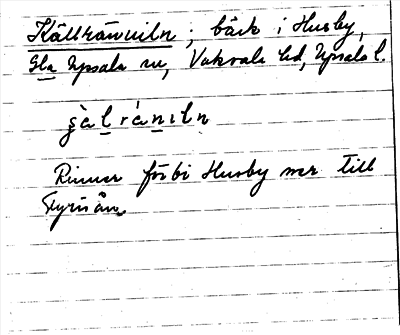 Källränniln; bäck i Husby,
Gla Upsala sn, Vaksala hd, Upsala l.
s̀àlrániln
Rinner förbi Husby ner till
Fyrisån.